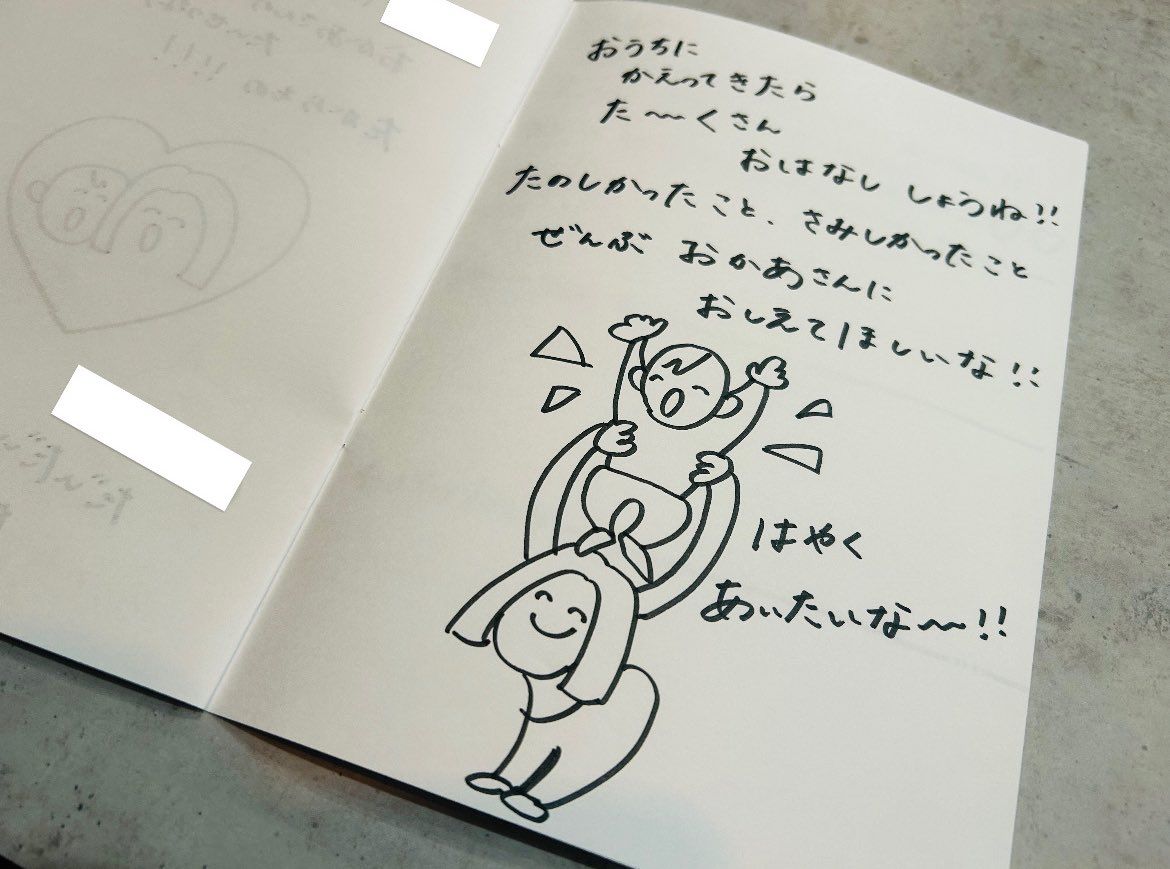 おうちに
かえってきたら
た〜くさん
おはなし しようね!!
たのしかったこと、さみしかったこと
ぜんぶ おかあさんに
おしえてほしいな!!
はやく
あいたいな〜!!